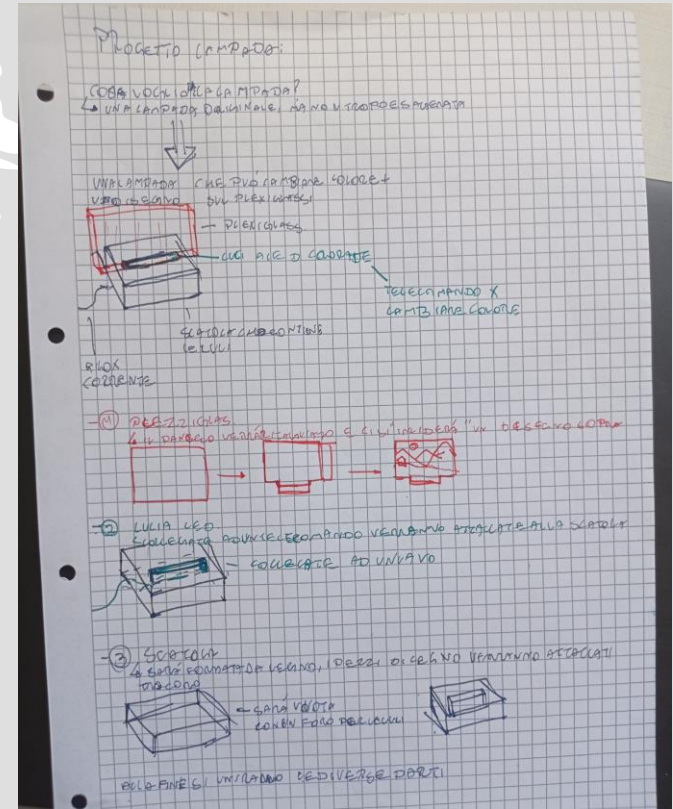 PROGETTO LAMPADA:
COSA VOGLIO
LA LAMPADA?
↳ UNA LAMPADA ORIGINALE, MA NON TROPPO ESAGERATA
UNA LAMPADA CHE PUÒ CAMBIARE COLORE +
SUL PLEXIGLASS
PLEXIGLASS
LUCI
COLORATE
TELECOMANDO X
CAMBIARE COLORE
SCATOLA CHE CONTIENE
LE LUCI
CORRENTE
①
↳ IL
VERRÀ
E
UN DISEGNO SOPRA
② LUCI A LED
AD UN TELECOMANDO VERRANNO ATTACCATE ALLA SCATOLA
COLLEGATE AD UN CAVO
③ SCATOLA
↳ SARÀ FORMATA DA LEGNO, I PEZZI DI LEGNO VERRANNO ATTACCATI
SARÀ VUOTA
CON UN FORO PER LE LUCI
ALLA FINE SI UNIRANNO LE DIVERSE PARTI